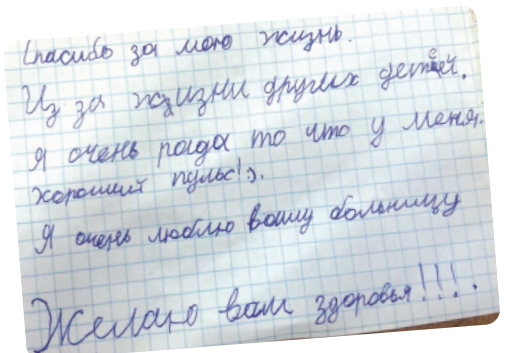 Спасибо за мою жизнь.
Из за жизни других детей.
Я очень рада то что у меня.
хороший пульс!).
Я очень люблю вашу больницу
Желаю вам здоровья!!!.